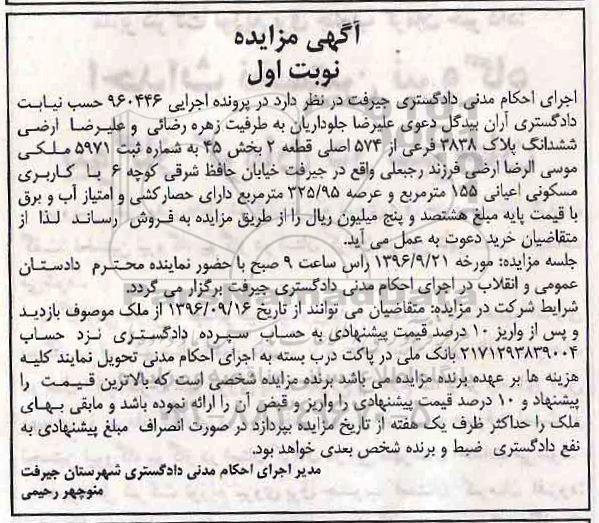 آگهی مزایده
نوبت اول
اجرای احکام مدنی دادگستری جیرفت در نظر دارد در پرونده اجرایی ۹۶۰۴۴۶ حسب نیابت
دادگستری آران بیدگل دعوی علیرضا جلوداریان به طرفیت زهره رضائی و علیرضا ارضی
ششدانگ پلاک ۳۸۳۸ فرعی از ۵۷۴ اصلی قطعه ۲ بخش ۴۵ به شماره ثبت ۵۹۷۱ ملکی
موسی الرضا ارضی فرزند رجبعلی واقع در جیرفت خیابان حافظ شرقی کوچه ۶ با کاربری
مسکونی اعیانی ۱۵۵ مترمربع و عرصه ۳۲۵/۹۵ مترمربع دارای حصارکشی و امتیاز آب و برق
با قیمت پایه مبلغ هشتصد و پنج میلیون ریال را از طریق مزایده به فروش رساند لذا از
متقاضیان خرید دعوت به عمل می آید.
جلسه مزایده: مورخه ۱۳۹۶/۹/۲۱ راس ساعت ۹ صبح با حضور نماینده محترم دادستان
عمومی و انقلاب در اجرای احکام مدنی دادگستری جیرفت برگزار می گردد.
شرایط شرکت در مزایده: متقاضیان می توانند از تاریخ ۱۳۹۶/۰۹/۱۶ از ملک موصوف بازدید
و پس از واریز ۱۰ درصد قیمت پیشنهادی به حساب سپرده دادگستری نزد حساب
۲۱۷۱۲۹۳۸۳۹۰۰۴ بانک ملی در پاکت درب بسته به اجرای احکام مدنی تحویل نمایند کلیه
هزینه ها بر عهده برنده مزایده می باشد برنده مزایده شخصی است که بالاترین قیمت را
پیشنهاد و ۱۰ درصد قیمت پیشنهادی را واریز و قبض آن را ارائه نموده باشد و مابقی بهای
ملک را حداکثر ظرف یک هفته از تاریخ مزایده بپردازد در صورت انصراف مبلغ پیشنهادی به
نفع دادگستری ضبط و برنده شخص بعدی خواهد بود.
مدیر اجرای احکام مدنی دادگستری شهرستان جیرفت
منوچهر رحیمی